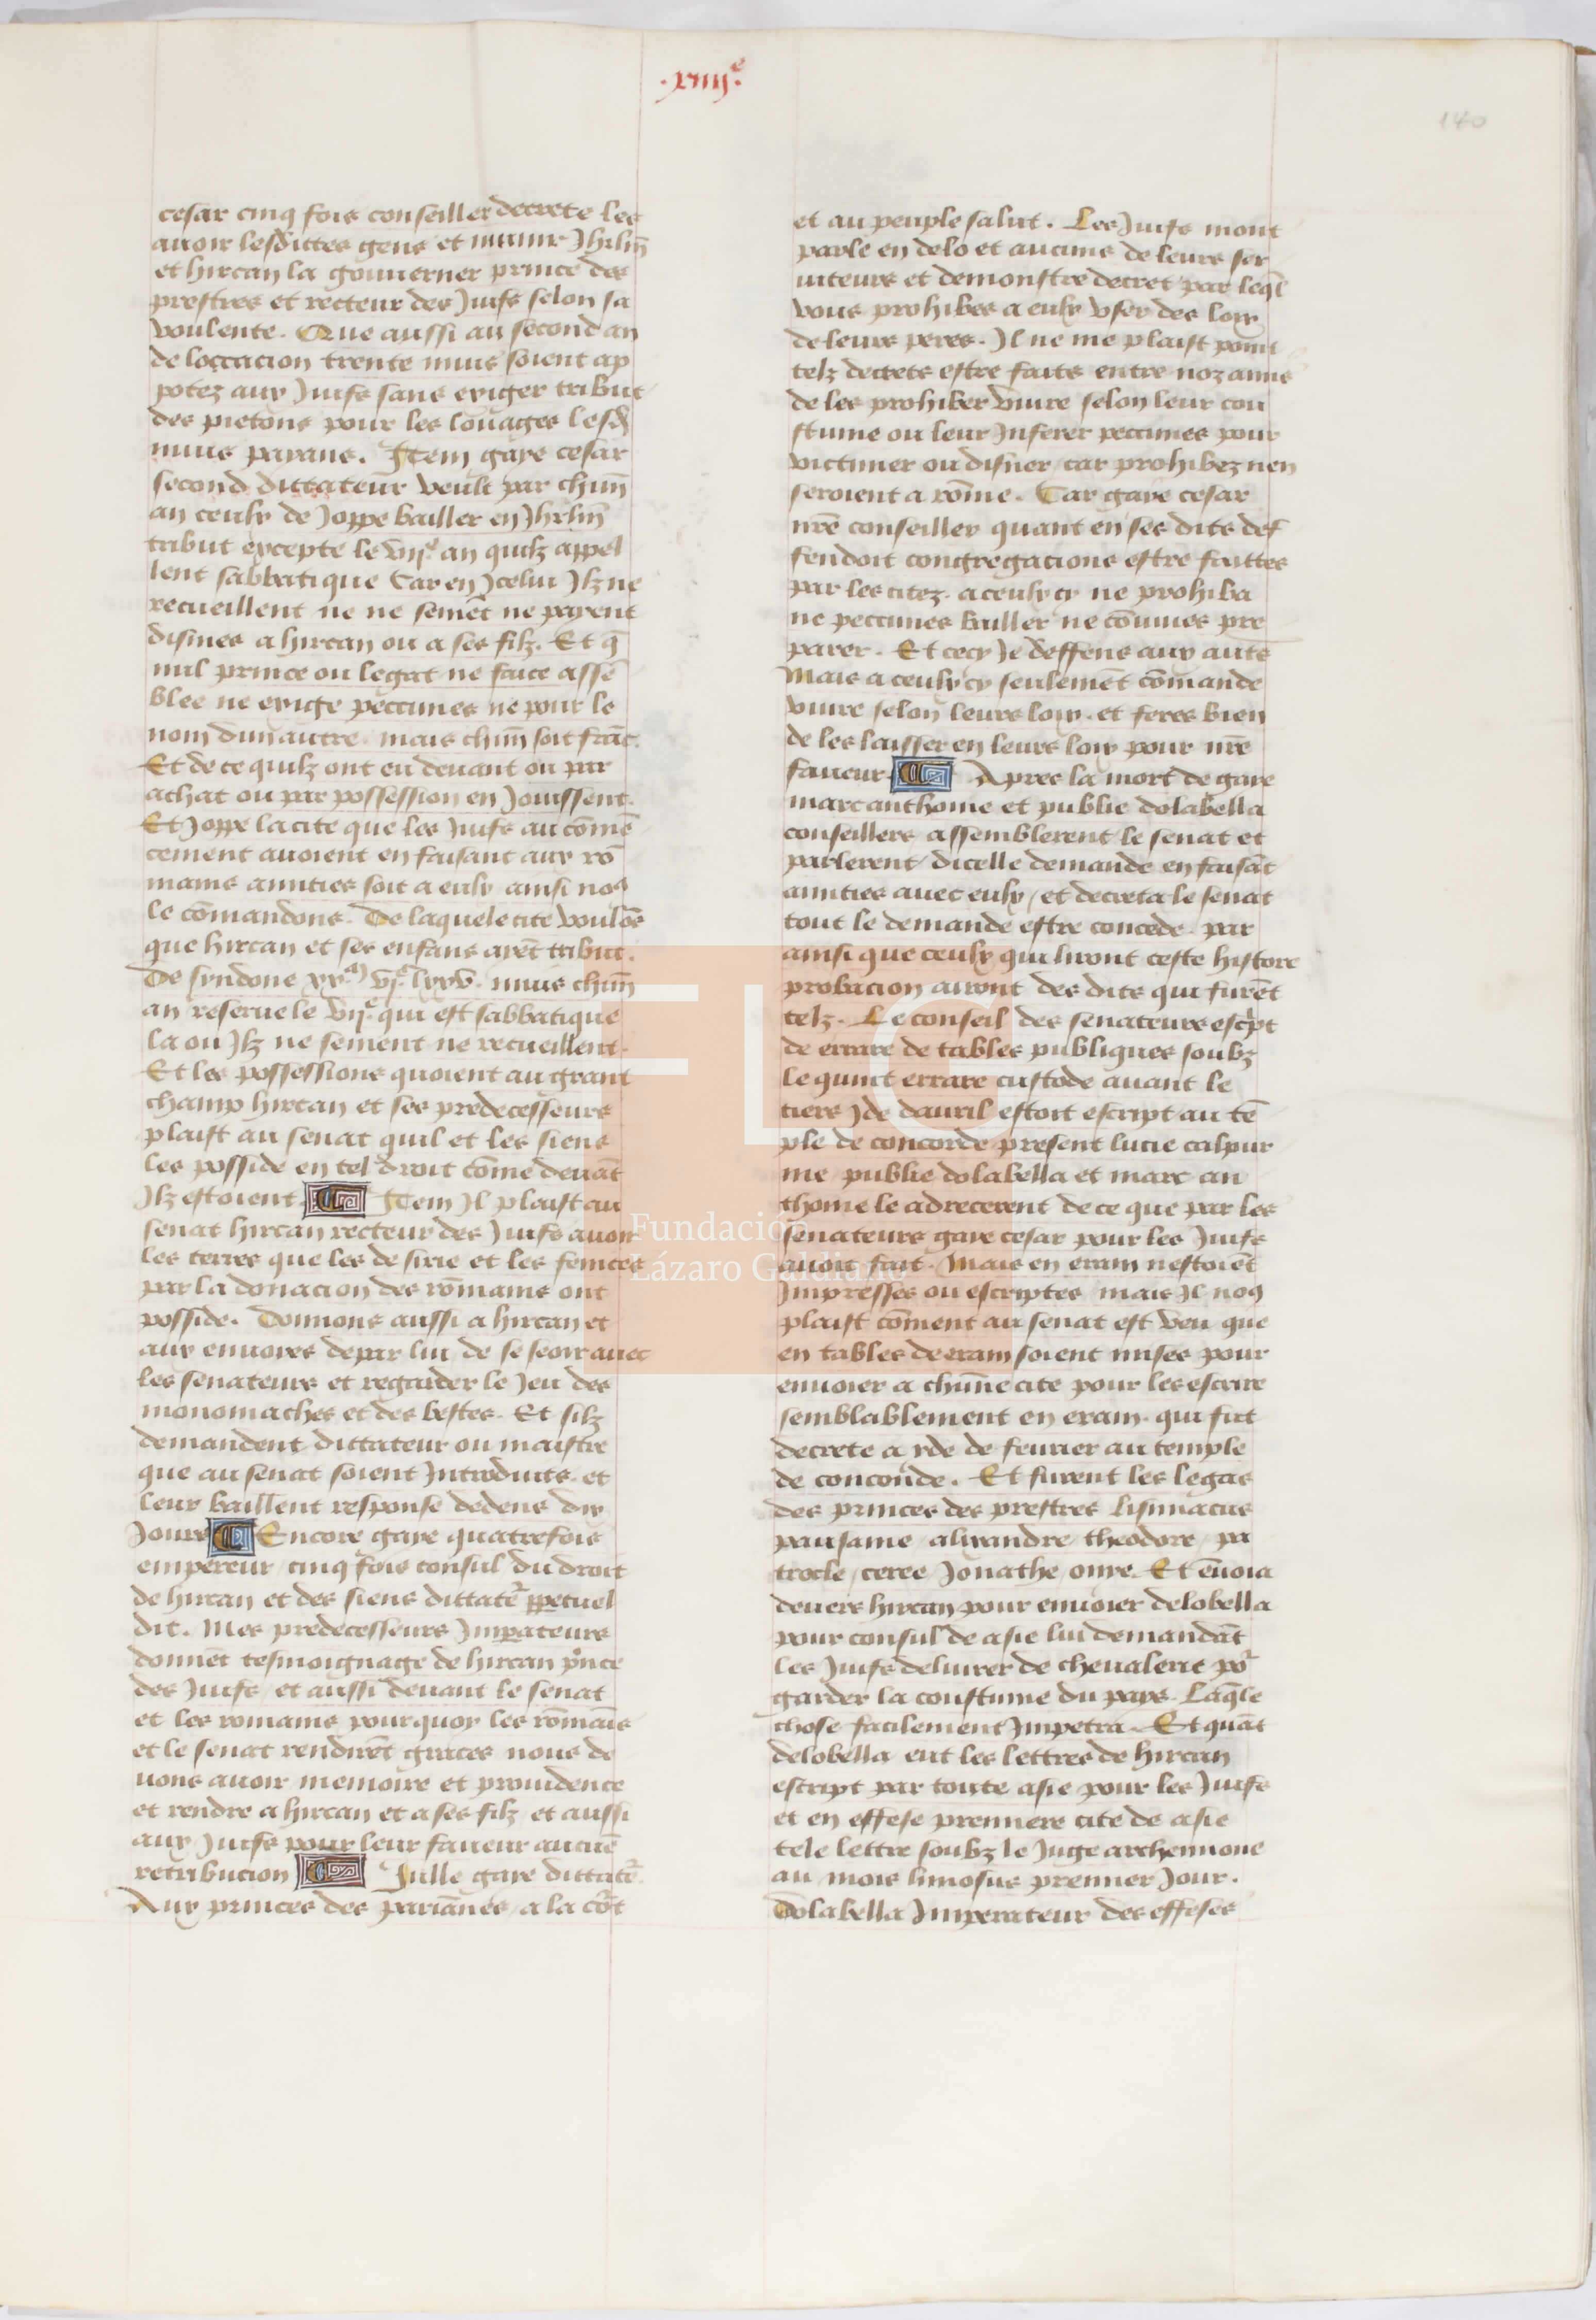 .xiiij.e
140
cesar cinq fois conseiller decrete les
auoir lesdittes gens et munir Jhrlm̄
et hircan la gouuerner prince des
prestres et recteur des Juifs selon sa
voulente. Que aussi au second an
de loccacion trente muis soient ap
potez aux Juifs sans exiger tribut
des pietons pour les louages lesd
muis payans. Item gaye cesar
second dictateur veult par chūn
an ceulx de Joppe bailler en Jhrlm̄
tribut excepte le vije an quilz appel
lent sabbatique Car en Jcelui Jlz ne
recueillent ne ne semēt ne payent
dismes a hircan ou a ses filz. Et q̄
nul prince ou legat ne face assē
blee ne exige peccunes ne pour le
nom dun autre. mais chūn soit frāc.
Et de ce quilz ont eu deuant ou par
achat ou par possession en Jouissent.
Et Joppe la cite que les Juifs au cōmē
cement auoient en faisant aux rō
mains amities soit a eulx ainsi nos
le cōmandons. De laquele cite voulōs
que hircan et ses enfans ayēt tribut.
De syndone xxm vjc lxxv. muis chūn
an reserue le vije qui est sabbatique
la ou Jlz ne sement ne recueillent.
Et les possessions quoient au grant
champ hircan et ses predecesseurs
plaist au senat quil et les siens
les posside en tel droit cōme deuāt
Jlz estoient. Item Jl plaist au
senat hircan recteur des Juifs auoir
les terres que les de sirie et les fenices
par la donacion des rōmains ont
posside. Donnons aussi a hircan et
aux enuoies depar lui de se seoir auec
les senateurs et regarder le Jeu des
monomaches et des bestes. Et silz
demandent dictateur ou maistre
que au senat soient Introduits. et
leur baillent response dedens dix
Jours Encore gaye quatrefois
empereur cinq fois consul du droit
de hircan et des siens dittatē ppetuel
dit. Mes predecesseurs Imperateurs
donnēt tesmoignage de hircan p̄nce
des Juifs et aussi deuant le senat
et les romains pourquoy les rōmaīs
et le senat rendirēt graces nous de
uons auoir memoire et prouidence
et rendre a hircan et a ses filz et aussi
aux Juifs pour leur faueur aucuē
retribucion Julle gaye dittatē.
Aux princes des pariānes a la cōt
et au peuple salut. Les Juifs mont
parle en delo et aucuns de leurs ser
uiteurs et demonstre decret par leq̄l
vous prohibes a eulx vser des loix
de leurs peres. Jl ne me plaist point
telz decrets estre faits entre noz amis
de les prohiber viure selon leur cou
stume ou leur Inferer peccunes pour
victimer ou disner car prohibez nen
seroient a rōme. Car gaye cesar
nr̄e conseiller quant en ses dits def
fendoit congregacions estre faittes
par les citez. a ceulx cy ne prohiba
ne peccunes bailler ne cōmies pre
parer. Et cecy Je deffens aux autē
Mais a ceulx cy seulemēt cōmande
viure selon leurs loix. et feres bien
de les laisser en leurs loix pour nr̄e
faueur Apres la mort de gaye
marc anthoine et publie dolabella
conseillers assemblerent le senat et
parlerent dicelle demande en faisāt
amities auec eulx / et decreta le senat
tout le demande estre concede. par
ainsi que ceulx qui liront ceste histore
probacion auront des dits qui furēt
telz. Le conseil des senateurs esc̄pt
de errare de tables publiques soubz
le quint errare custode auant le
tiers Jde dauril estoit escript au tē
ple de concorde present lucie calpur
nie / publie dolabella et marc an
thoine le adrecerent de ce que par les
senateurs gaye cesar pour les Juifs
auoit fait. Mais en eram nestoiēt
Impresses ou escriptes mais Jl nos
plaist cōment au senat est veu que
en tables de eram soient mises pour
enuoier a chūne cite pour les escrire
semblablement en eram. qui fut
decrete a yde de feurier au temple
de concorde. Et furent les legas
des princes des prestres lisimacus
pausanie / alixandre / theodore / pa
trocle / ceree Jonathe / onixe. Et ēuoia
deuers hircan pour enuoier delobella
pour consul de asie lui demandāt
les Juifs deliurer de cheualerie po2
garder la coustume du pays. Laq̄le
chose facilement Impetra. Et quāt
delobella eut les lettres de hircan
escript par toute asie pour les Juifs
et en effese premiere cite de asie
tele lettre soubz le Juge archemone
au mois limosus premier Jour.
Dolabella Imperateur des effeses
Fundación
Lázaro Galdiano
FLG